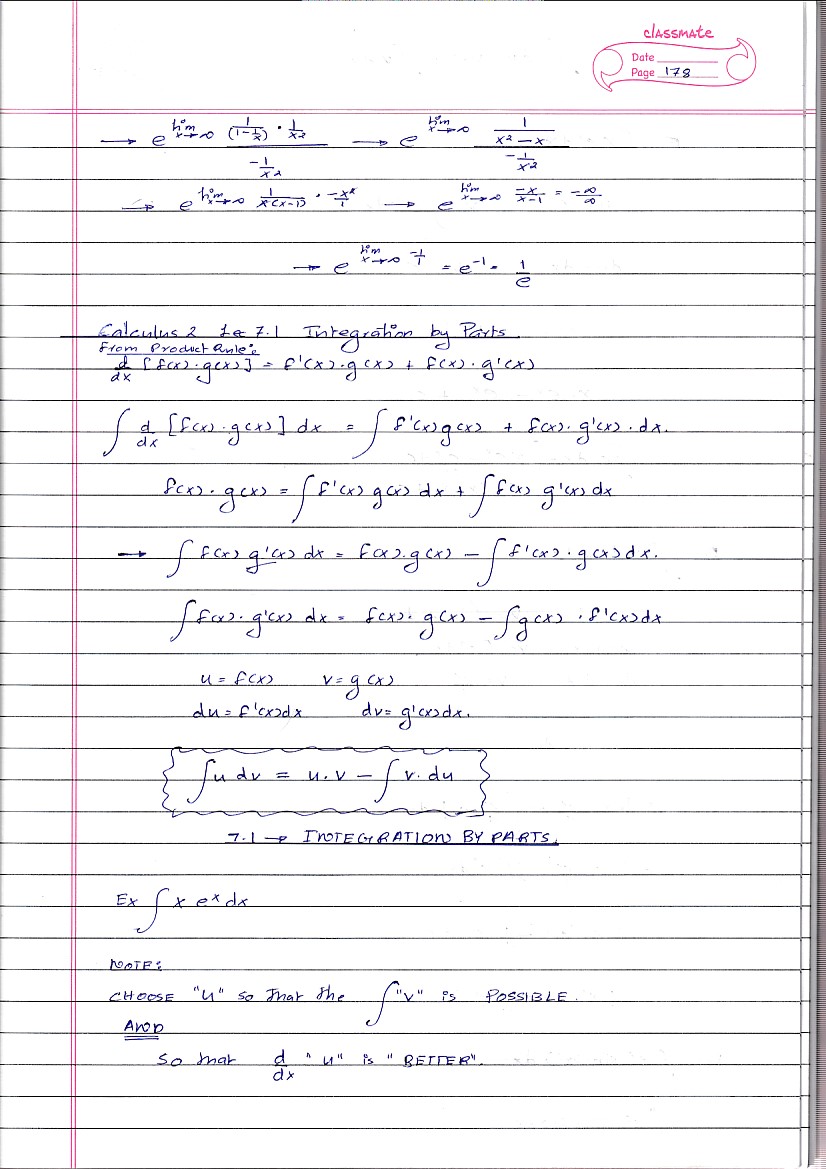 classmate
Date
Page 178
→ e^{lim x→∞ (1/(1-1/x) · 1/x2) / (-1/x2)} → e^{lim x→∞ (1/(x²-x)) / (-1/x²)}
→ e^{lim x→∞ 1/(x(x-1)) · -x²/1} → e^{lim x→∞ -x/(x-1) = -∞/∞}
→ e^{lim x→∞ -1/1} = e^{-1} = 1/e
Calculus 2 Lec 7.1 Integration by Parts
From Product Rule:
d/dx [f(x)·g(x)] = f'(x)·g(x) + f(x)·g'(x)
∫ d/dx [f(x)·g(x)] dx = ∫ f'(x)g(x) + f(x)·g'(x)·dx.
f(x)·g(x) = ∫ f'(x) g(x) dx + ∫ f(x) g'(x) dx
→ ∫ f(x) g'(x) dx = f(x).g(x) - ∫ f'(x)·g(x) dx.
∫ f(x)·g'(x) dx = f(x)· g(x) - ∫ g(x) · f'(x) dx
u = f(x) v = g(x)
du = f'(x)dx dv = g'(x)dx.
∫ u dv = u.v - ∫ v. du
7.1 → INTEGRATION BY PARTS.
Ex ∫ x e^x dx
NOTE:
CHOOSE "u" so that the ∫ "v" is POSSIBLE.
AND
so that d/dx "u" is "BETTER".